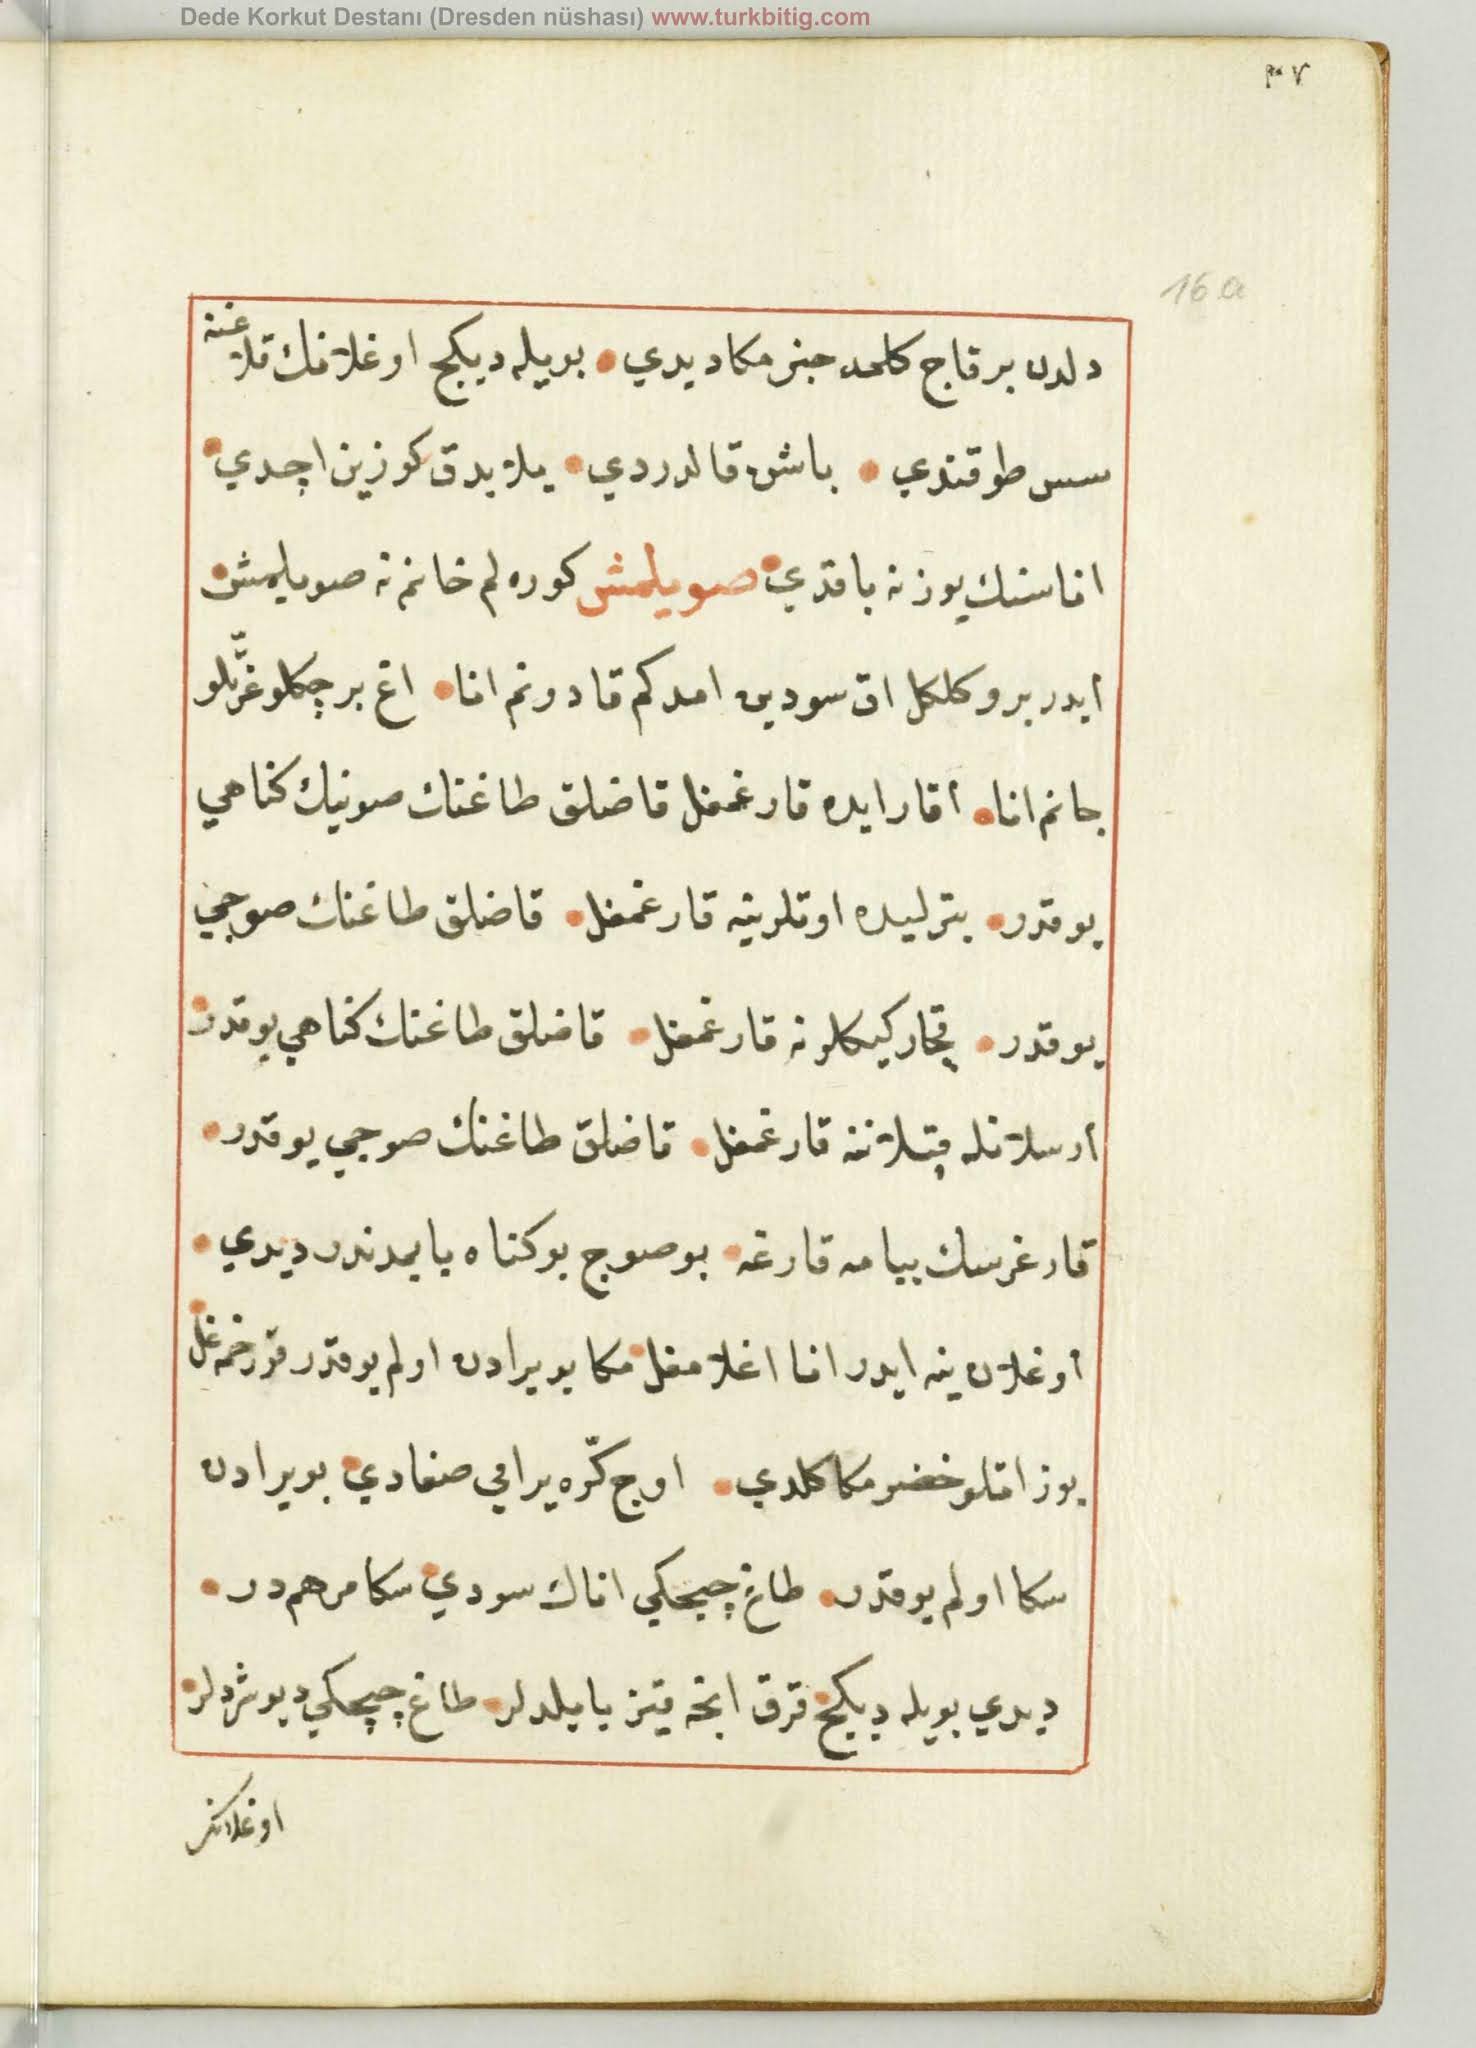 Dede Korkut Destanı (Dresden nüshası) www.turkbitig.com
۳۷
16a
دلدن بر قاج كلمه جبر مكا ديدي بويله ديكج اوغلانك قلاغنه
سس طوقندي باشن قالدردي يلابدق كوزين اچدي
اناسنك يوزنه باقدي صويلمش كوره لم خانم نه صويلمش
أيدر برو كلكل اق سودين امدكم قادونم انا اغ برچكلو عزّتلو
جانم انا أقار ايده قارغمغل قاضلق طاغنك صوينك كناهي
يوقدر بترليده اوتلرينه قارغمغل قاضلق طاغنك صوجي
يوقدر قچار كيكلرنه قارغمغل قاضلق طاغنك كناهي يوقدر
أرسلانله قپلاننه قارغمغل قاضلق طاغنك صوجي يوقدر
قارغرسك بيامه قارغه بو صوج بو كناه بابمدندر ديدي
أوغلان ينه ايدر انا اغلامغل مكا بو يرادن اولم يوقدر قورخمه غل
بوز اتلو خضر مكا كلدي اوج كرّه يرامي صغادي بو يرادن
سكا اولم يوقدر طاغ چيچكي اناك سودي سكا مرهم در
ديدي بويله ديكج قرق انجه قيز يايلدلر طاغ چيچكي ديوشردلر
اوغلانك